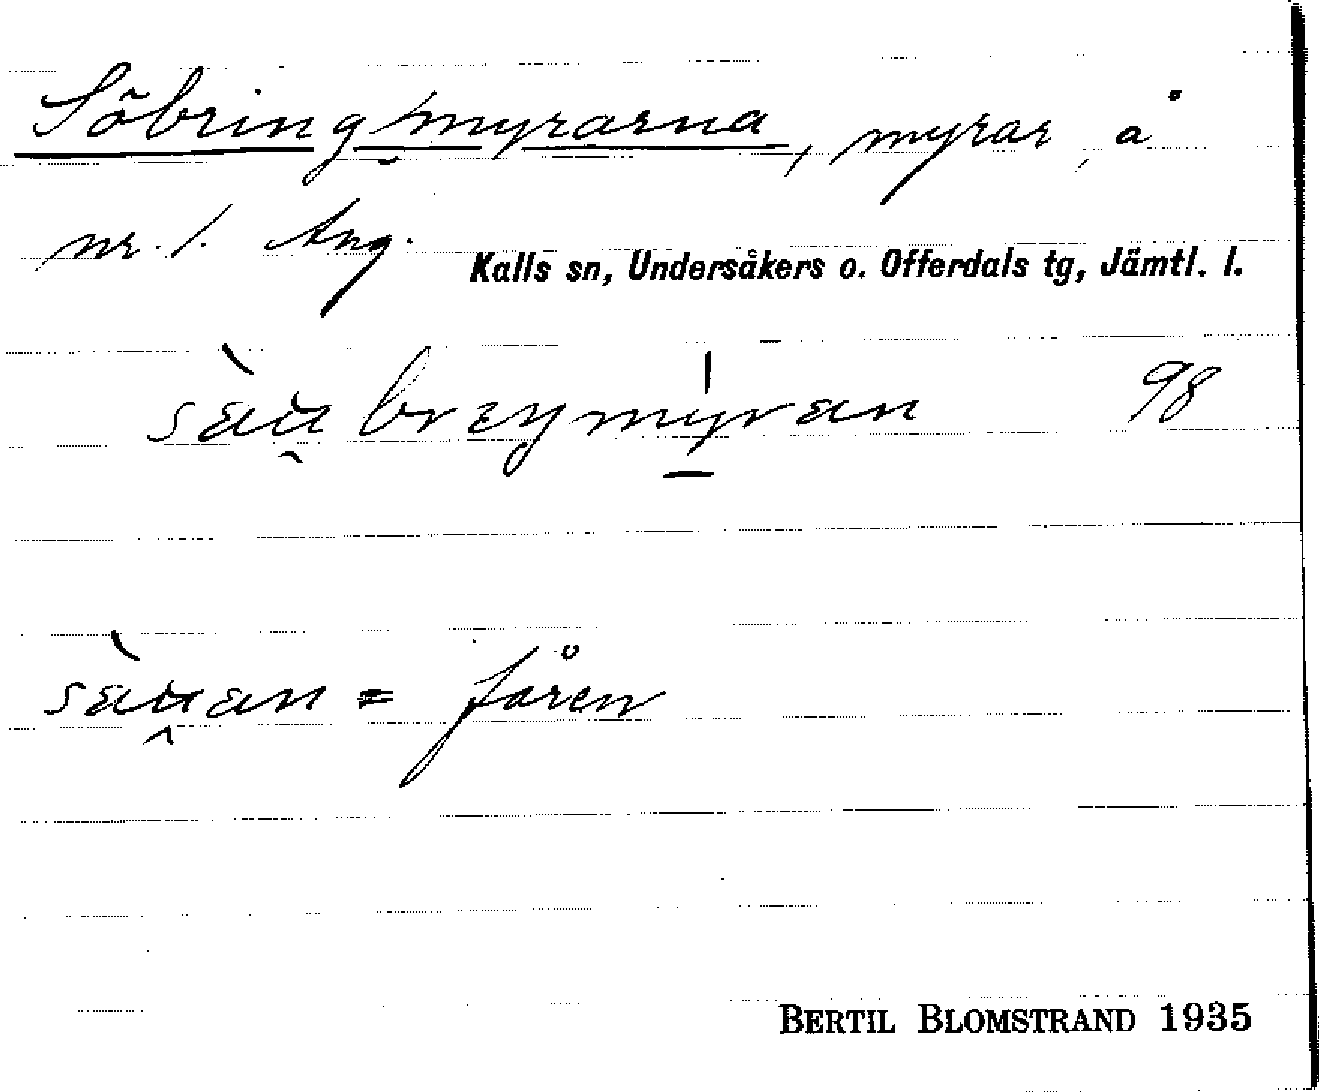 Söbringmyrarna, myrar, å
nr. 1. Ang.
Kalls sn, Undersåkers o. Offerdals tg, Jämtl. l.
sàu̯breŋmyran 98
sàu̯an = fåren
BERTIL BLOMSTRAND 1935